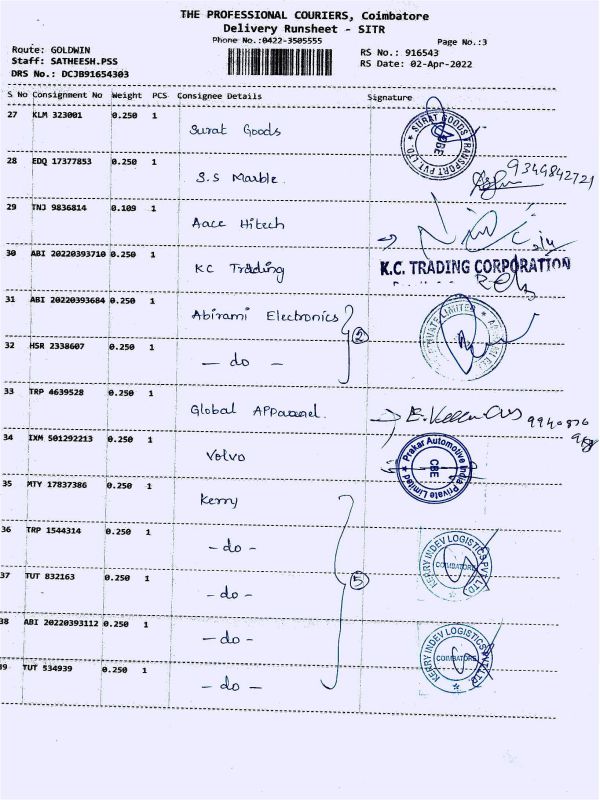 THE PROFESSIONAL COURIERS, Coimbatore
Delivery Runsheet - SITR
Phone No.:0422-3505555
Page No.:3
Route: GOLDWIN
RS No.: 916543
Staff: SATHEESH.PSS
RS Date: 02-Apr-2022
DRS No.: DCJB91654303
S No Consignment No Weight PCS Consignee Details Signature
27 KLM 323001 0.250 1 Surat Goods
SURAT GOODS TRANSPORT PVT. LTD. CBE
28 EDQ 17377853 0.250 1 S.S Marble.
9349842721
29 TNJ 9836814 0.109 1 Aace Hitech
30 ABI 20220393710 0.250 1 KC Trading
K.C. TRADING CORPORATION
31 ABI 20220393684 0.250 1 Abirami Electronics
2
32 HSR 2338607 0.250 1 - do -
33 TRP 4639528 0.250 1 Global APParanel.
34 IXM 501292213 0.250 1 Volvo
Prakar Automotive India Private Limited CBE
35 MTY 17837386 0.250 1 Kerry
36 TRP 1544314 0.250 1 - do -
KERRY INDEV LOGISTICS PVT. LTD. COIMBATORE
37 TUT 832163 0.250 1 - do -
5
38 ABI 20220393112 0.250 1 - do -
KERRY INDEV LOGISTICS PVT. LTD. COIMBATORE
39 TUT 534939 0.250 1 - do -